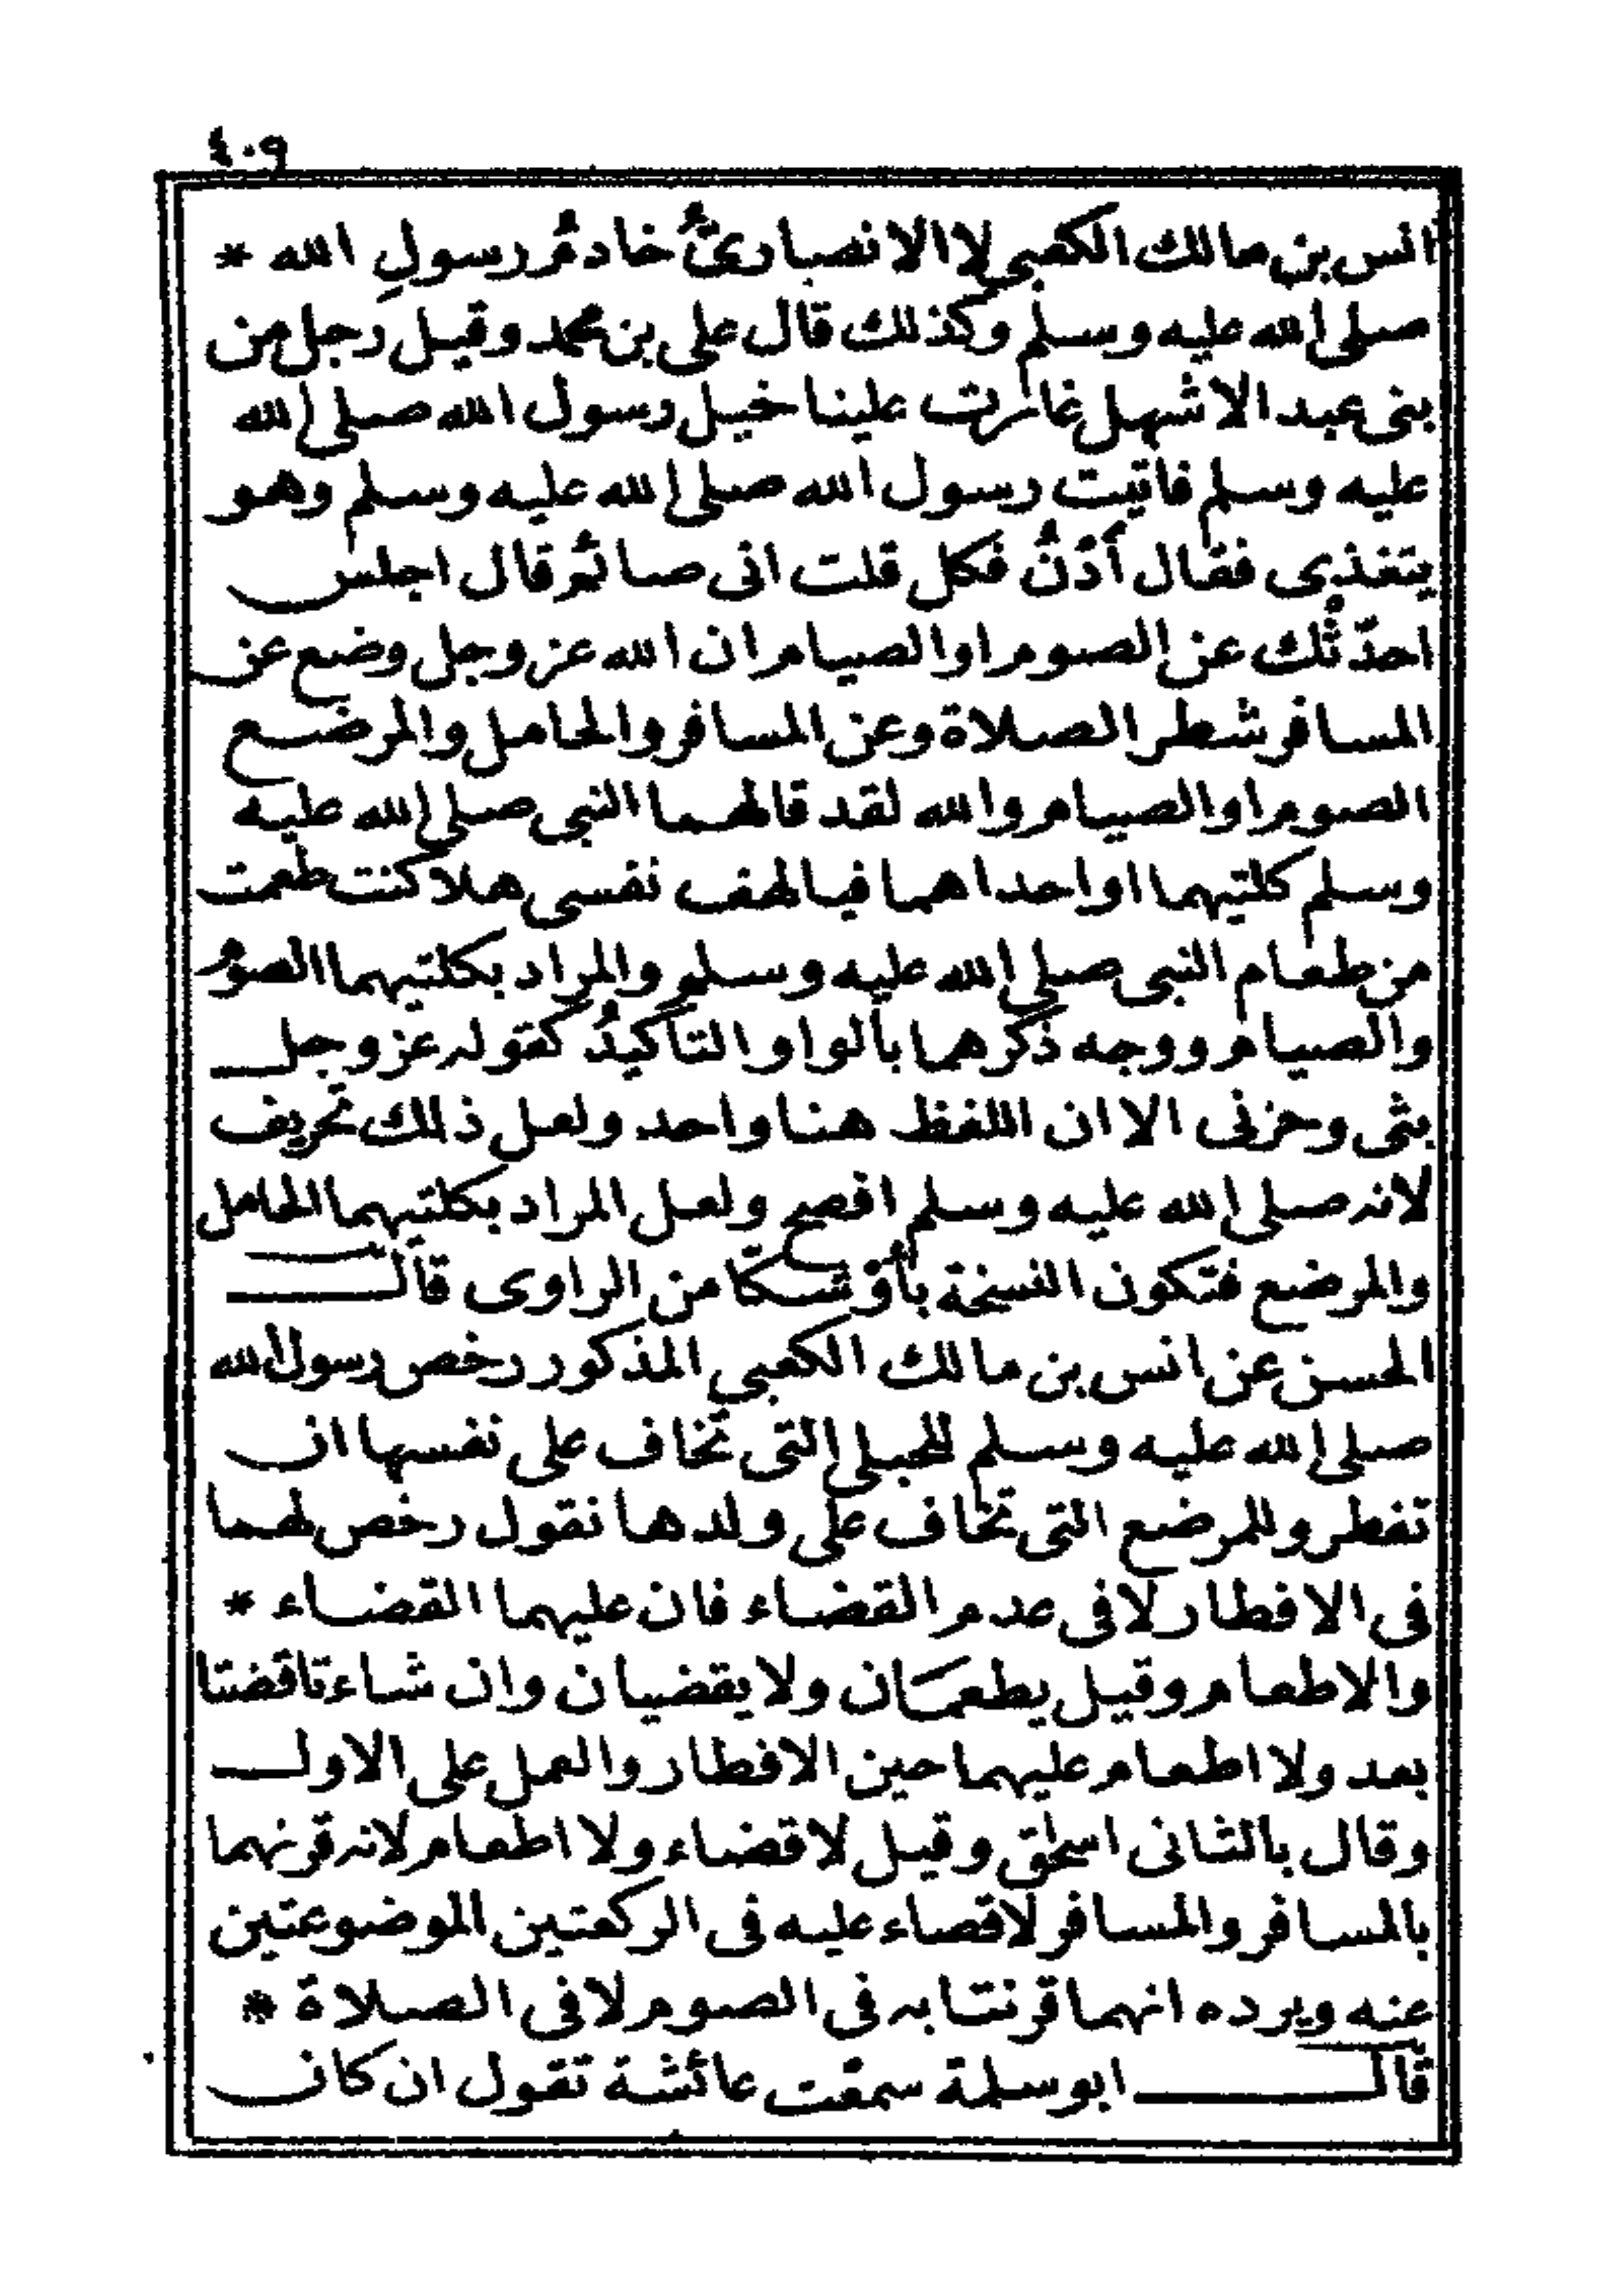 ٤٠٩
انس بن مالك الكعبي لا الانصاريُّ خادمُ رسولِ الله *
صلى الله عليه وسلم وكذلك قال على بن محمد وقيل رجل من
بنى عبد الاشهل غارت علينا خيل رسول الله صلى الله
عليه وسلم فاتيت رسول الله صلى الله عليه وسلم وهو
يتغذى فقال أُدْنُ فكل قلت انى صائمُ قال اجلس
احدّثْك عن الصوم او الصيام ان الله عز وجل وضع عن
المسافر شطر الصلاة وعن المسافر والحامل والمرضع
الصوم او الصيام والله لقد قالهما النبى صلى الله عليه
وسلم كلتيهما او احداهما فيالهف نفسى هلا كنت طعمت
من طعام النبى صلى الله عليه وسلم والمراد بكلتيهما الصومُ
والصيام ووجه ذكرهما بالواو التأكيدُ كقوله عز وجل
بثى وحزنى الا ان اللفظ هنا واحد ولعل ذلك تحريف
لانه صلى الله عليه وسلم افصح ولعل المراد بكلتيهما الحامل
والمرضع فتكون النسخة بأوْ شكّا من الراوى قال
الحسن عن انس بن مالك الكعبي المذكور رخص رسول الله
صلى الله عليه وسلم للحبلى التى تخاف على نفسها ان
تفطر وللمرضع التى تخاف على ولدها نقول رخص لهما
فى الافطار لا فى عدم القضاء فان عليهما القضاء *
والاطعام وقيل يطعمَان ولا يقضيان وان شاءتا قضتا
بعد ولا اطعام عليهما حين الافطار والعمل على الاول
وقال بالثانى اسحق وقيل لا قضاء ولا اطعام لانه قرنهما
بالمسافر والمسافر لا قصاء عليه فى الركعتين الموضوعتين
عنه ويرده انهما قرنتا به فى الصوم لا فى الصلاة *
قال ابو سلمة سمعت عائشة تقول ان كان